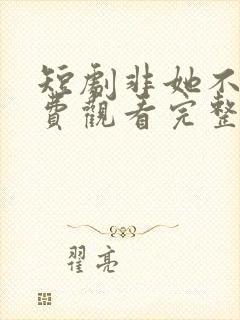 短劇非她不
費觀看完整
翟亮